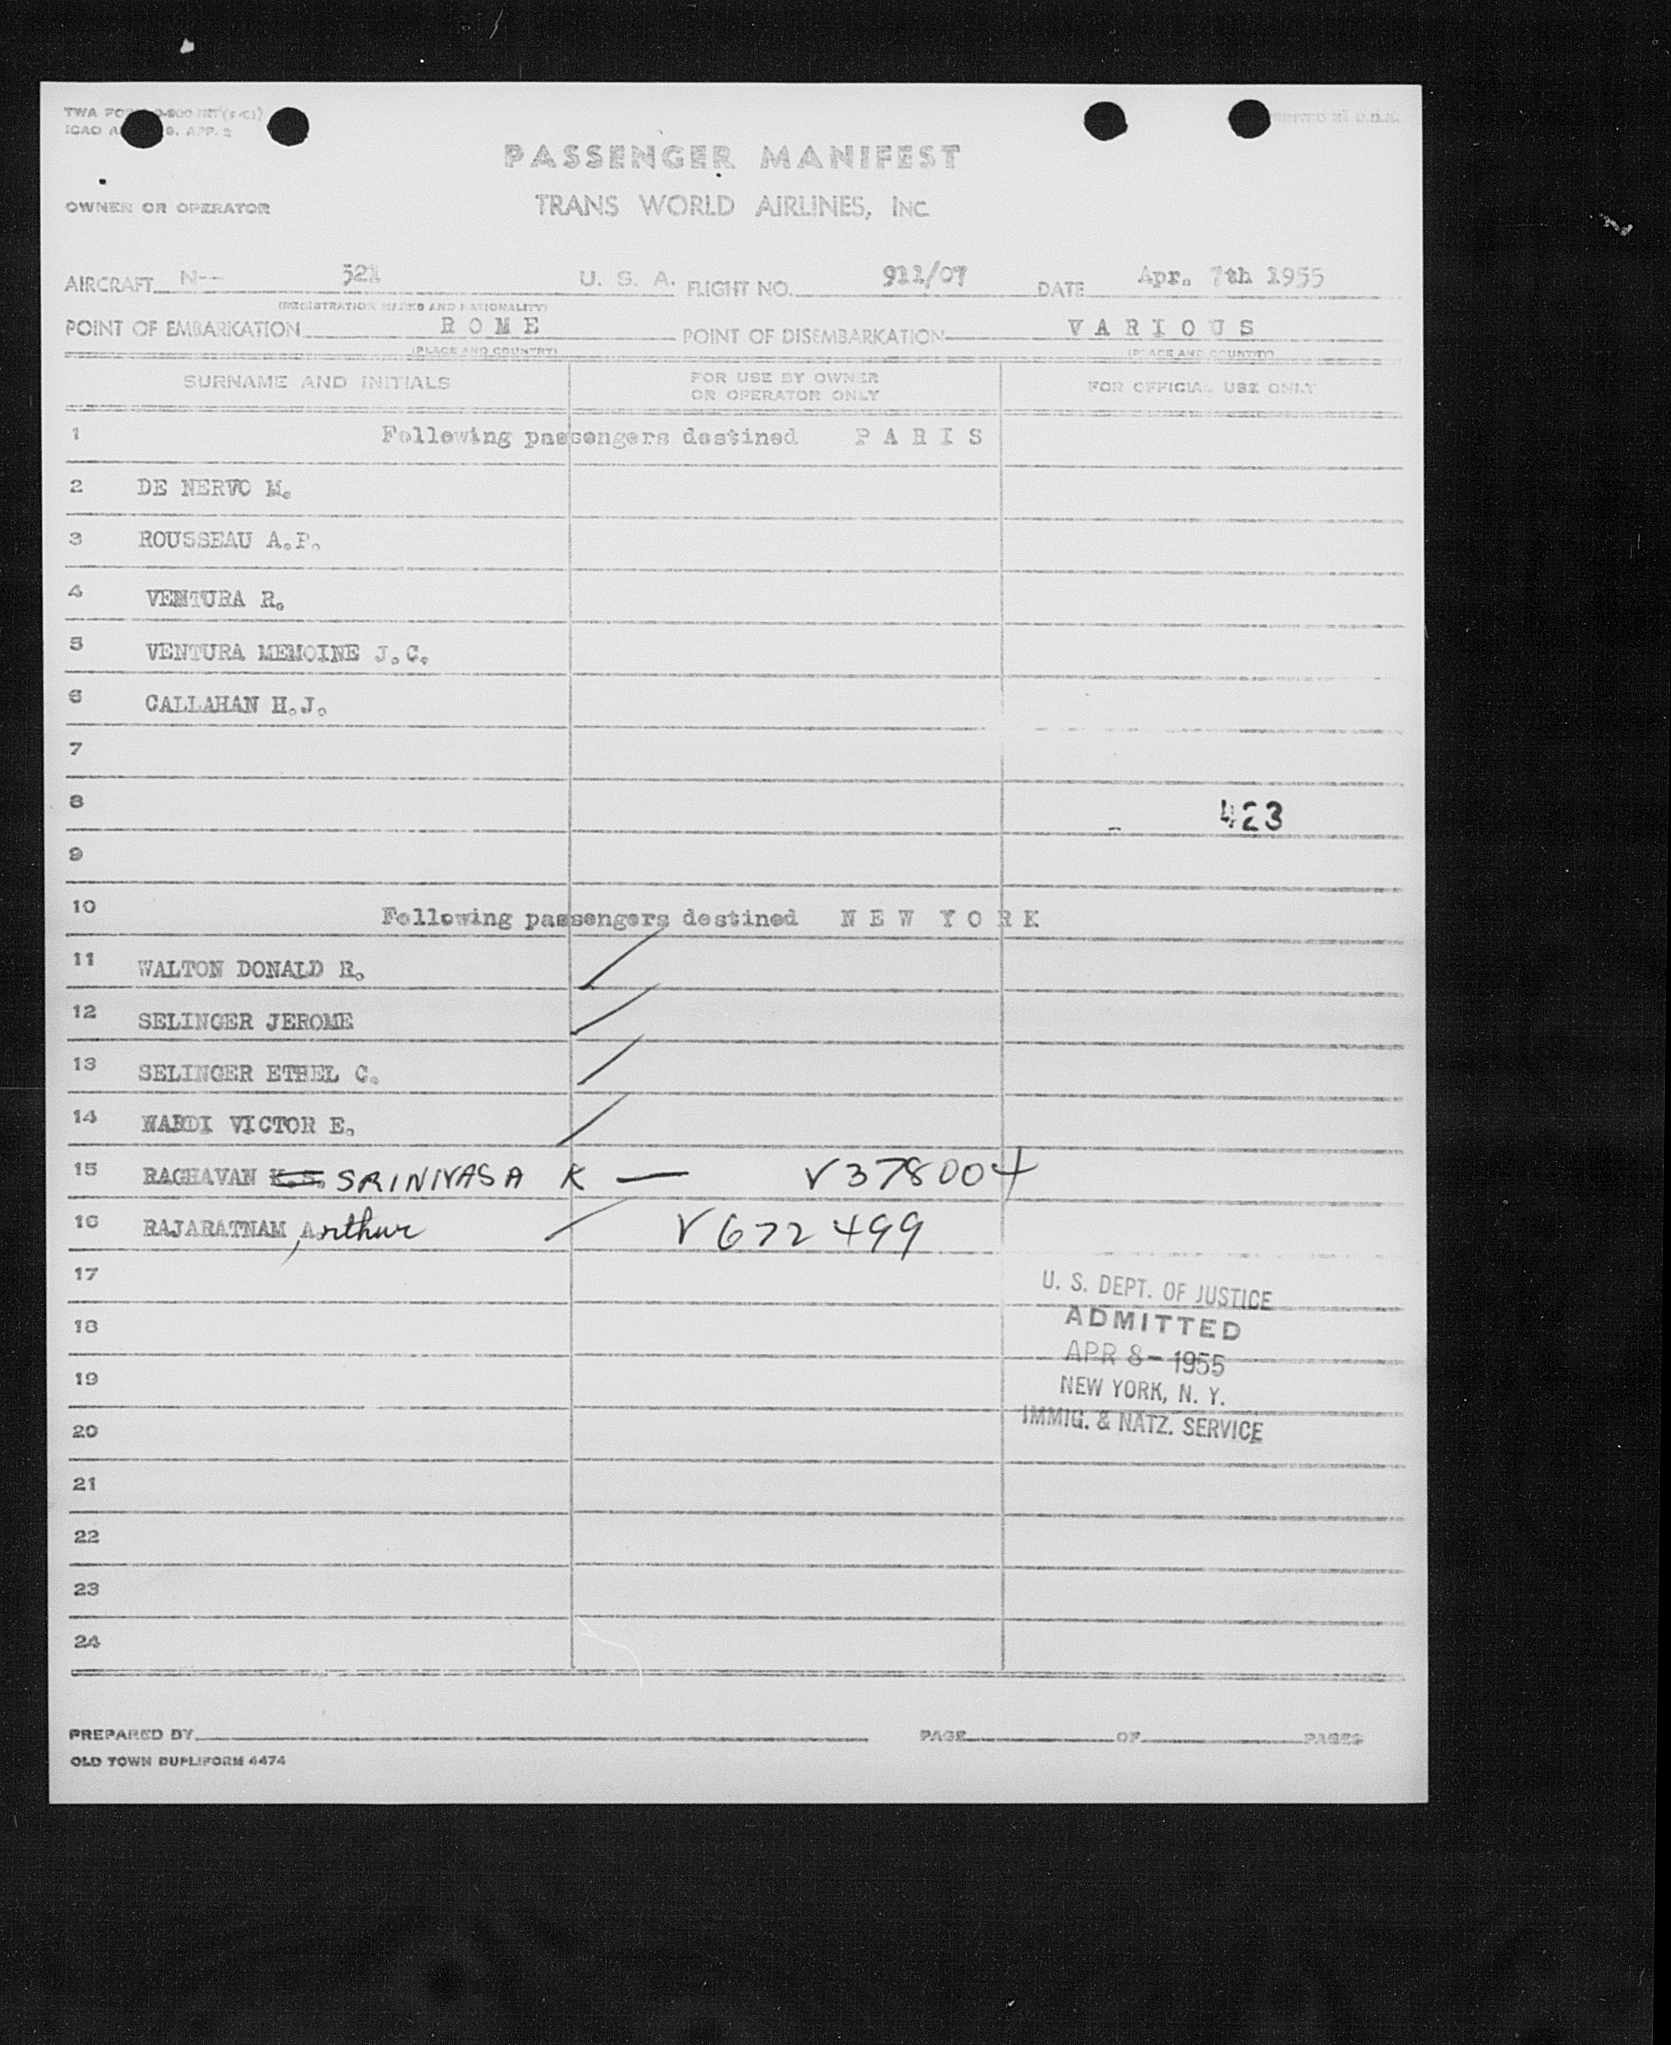 PASSENGER MANIFEST
OWNER OR OPERATOR TRANS WORLD AIRLINES, INC
AIRCRAFT N-- 521 U. S. A. FLIGHT NO. 911/07 DATE Apr. 7th 1955
(REGISTRATION MARKS AND NATIONALITY)
POINT OF EMBARKATION R O M E POINT OF DISEMBARKATION V A R I O U S
(PLACE AND COUNTRY) (PLACE AND COUNTRY)
SURNAME AND INITIALS FOR USE BY OWNER OR OPERATOR ONLY FOR OFFICIAL USE ONLY
1 Following passengers destined P A R I S
2 DE NERVO M.
3 ROUSSEAU A.P.
4 VENTURA R.
5 VENTURA MEMOINE J.C.
6 CALLAHAN H.J.
7
8 423
9
10 Following passengers destined N E W Y O R K
11 WALTON DONALD R.
12 SELINGER JEROME
13 SELINGER ETHEL C.
14 VICTOR E.
15 RAGHAVAN K.S. SRINIVASA K — V378004
16 RAJARATNAM, Arthur V672499
17 U. S. DEPT. OF JUSTICE
18 ADMITTED
APR 8 - 1955
19 NEW YORK, N. Y.
20 IMMIG. & NATZ. SERVICE
21
22
23
24
PREPARED BY PAGE OF PAGES
OLD TOWN DUPLIFORM 4474